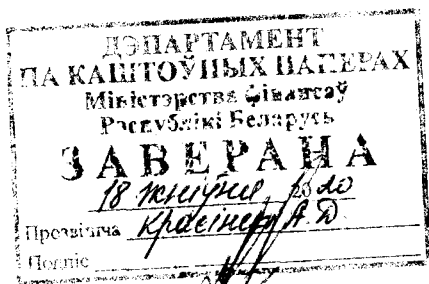 ДЭПАРТАМЕНТ
ПА КАШТОЎНЫХ ПАПЕРАХ
Міністэрства фінансаў
Рэспублікі Беларусь
ЗАВЕРАНА
18 жніўня 2020
Прозвішча А.Д.
Подпіс